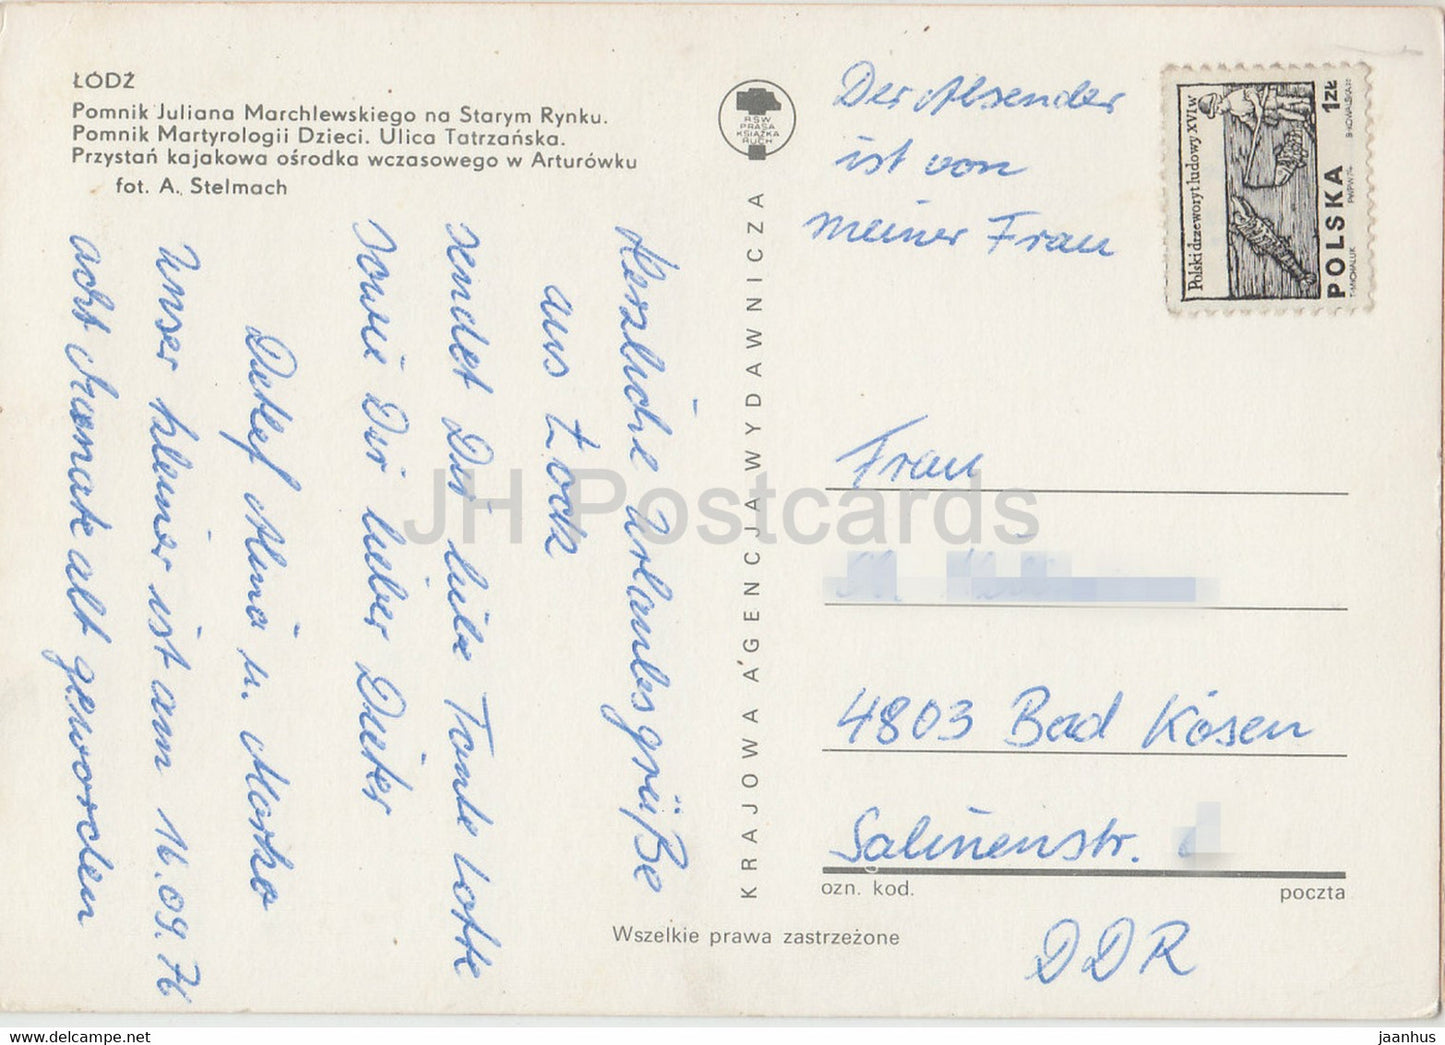 ŁÓDŹ
Pomnik Juliana Marchlewskiego na Starym Rynku.
Pomnik Martyrologii Dzieci. Ulica Tatrzańska.
Przystań kajakowa ośrodka wczasowego w Arturówku
fot. A. Stelmach
Herzliche Urlaubsgrüße
aus Łodz
sendet Dir liebe Tante Lotte
sowie Dir lieber Dieter
Detlef Alina u. Marko
Unser kleiner ist am 16.09.76
acht Monate alt geworden
RSW
PRASA
KSIĄŻKA
RUCH
KRAJOWA AGENCJA WYDAWNICZA
Der Absender
ist von
meiner Frau
Polski drzeworyt ludowy XVI w
POLSKA 1ZŁ
T. MICHALUK PWPW 74
Frau
4803 Bad Kösen
Salinenstr.
ozn. kod. poczta
DDR
Wszelkie prawa zastrzeżone
JH Postcards
www.delcampe.net
jaanhus